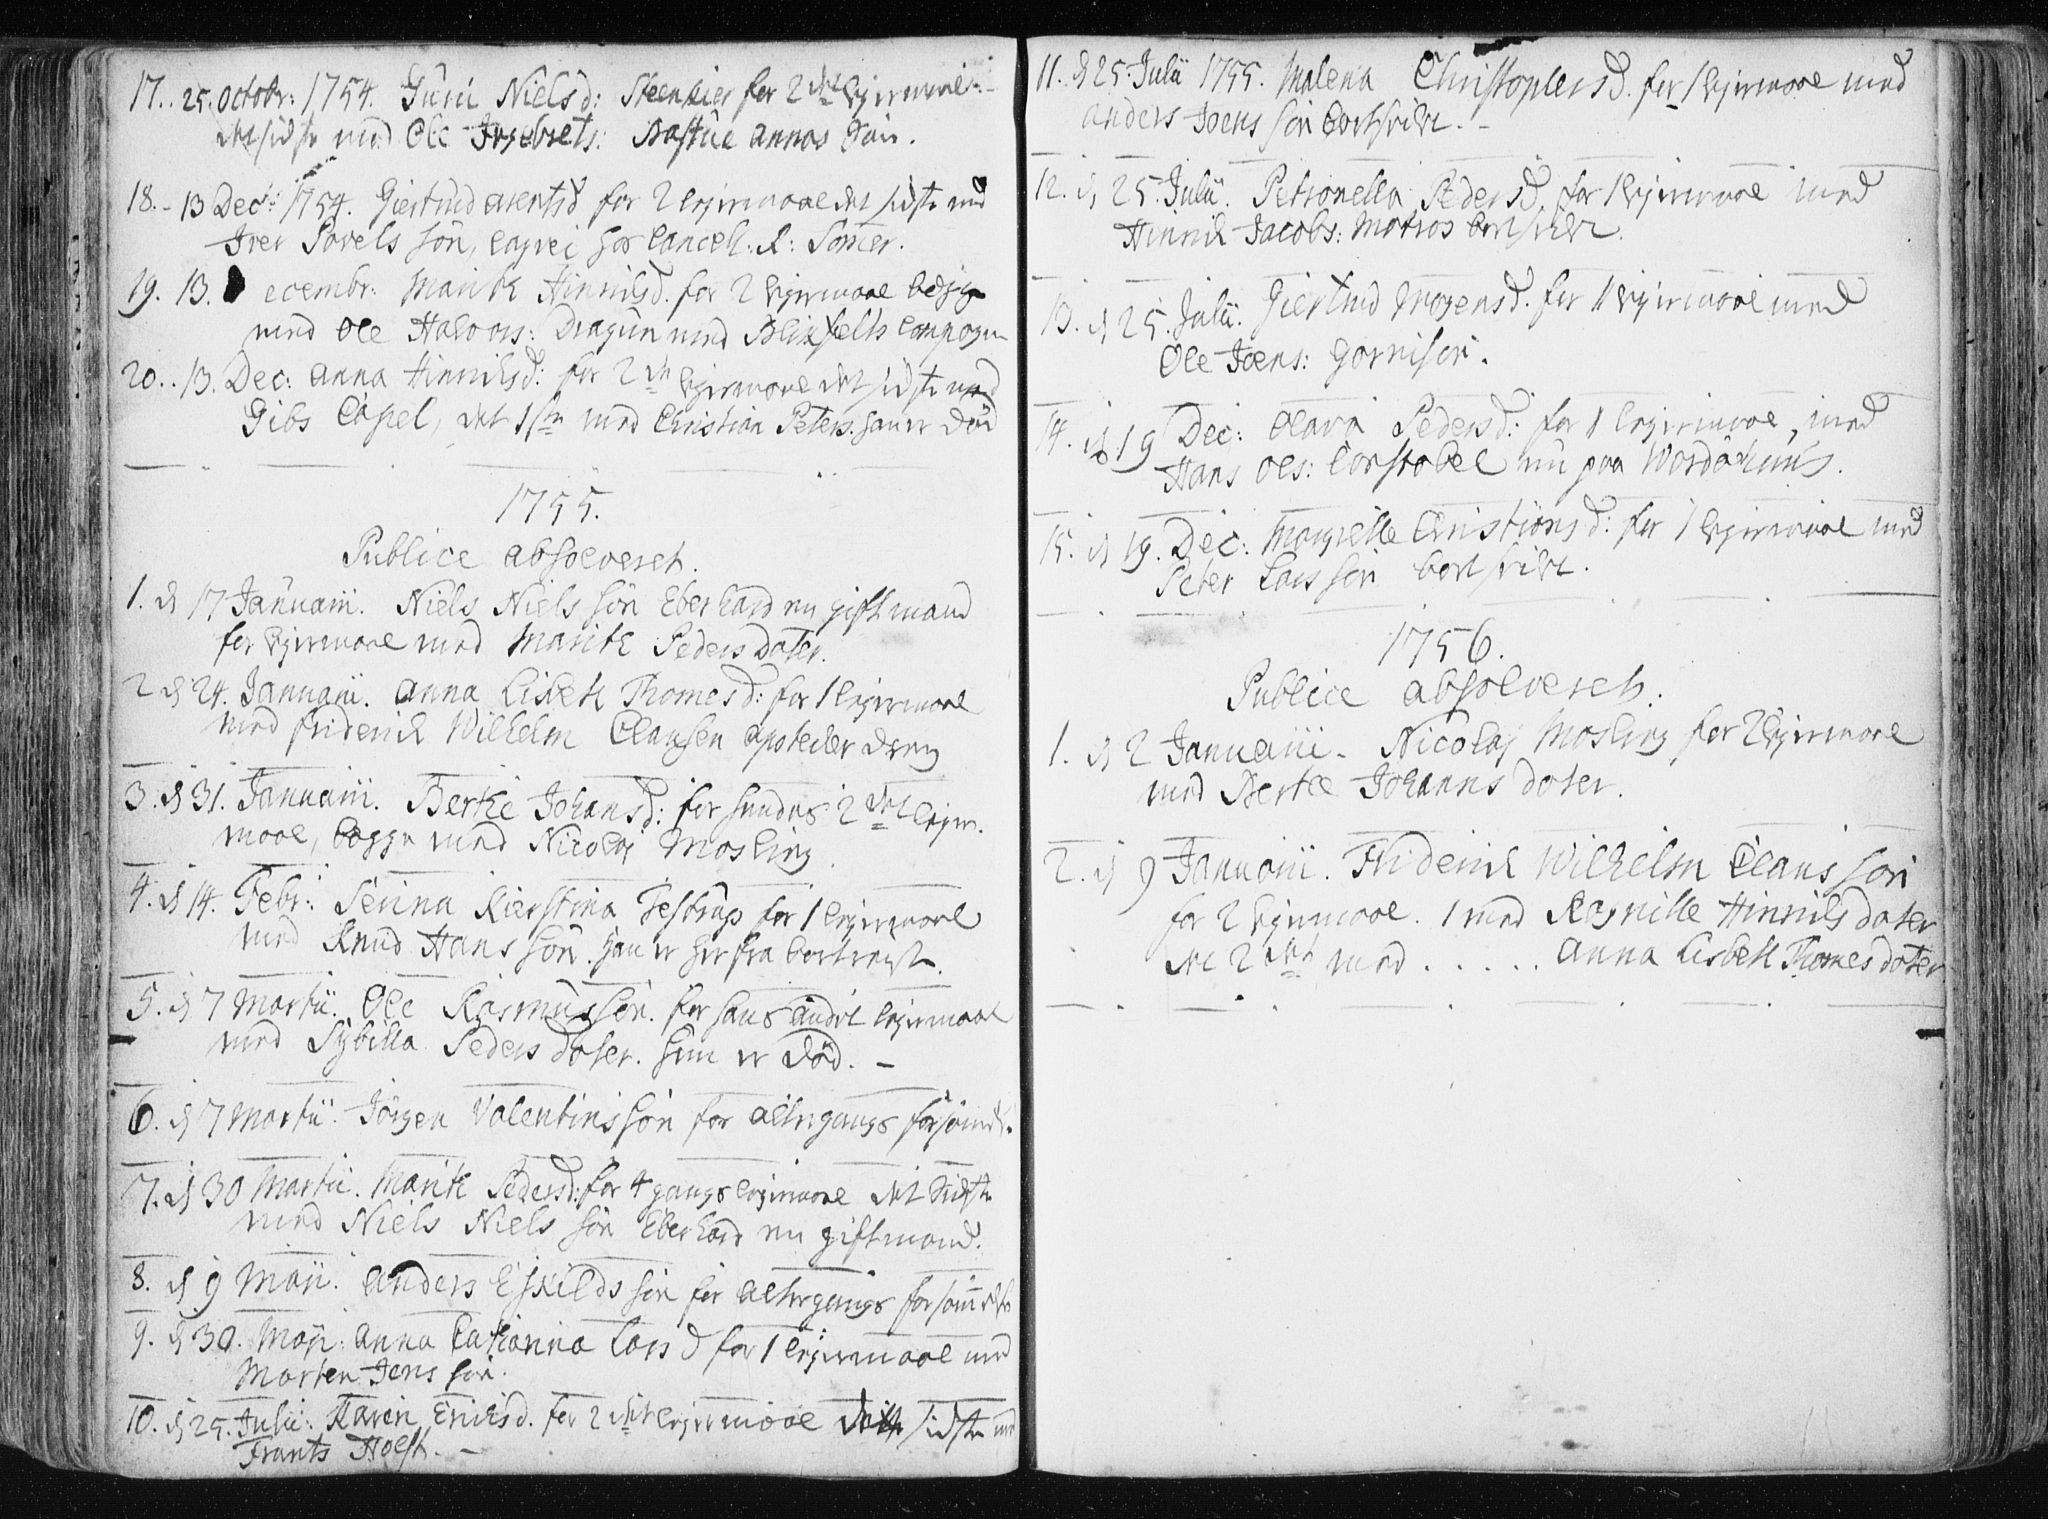 17. 25. Octobr: 1754. Guru Niels d: Steenkier for 2det lejermaal
det sidste med Ole Ingebrets:
18. 13 Dec: 1754. Giertrud arents d for 2 lejermaal det sidste med
Iver Povels søn, Cancell: R: Somer.
19. 13. ecembr: Marite Hinrichs d. for 2 lejermaal begge
med Ole Halvors: Dragun ved compagn
20. 13. Dec: Anna Hinrichs d: for 2det lejermaal det sidste med
Gibs Capel, det 1ste med Christian Peters. han er død
1755.
Publice absolveret.
1. d 17 Januarii. Niels Niels søn Eberhard nu gift mand
for lejermaal med Marite Peders dater.
2 d 24. Januarii. Anna Lisbeth Thomes d: for 1 lejermaal
med Friderich Wilhelm Clausen apoteker dreng
3. d 31. Januarii. Berte Johans d: for hendes 2det lejer-
maal, begge med Nicolaj Mosling.
4. d 14. Febr: Serina Kierstina for 1 lejermaal
med Knud Hans søn. han er her fra bortreist.
5. d 7 Martii. Ole Rasmus søn. for hans andet lejermaal
med Sybilla Peders dater. hun er død.
6. d 7 Martii. Jörgen Valentins søn for altergangs forsömelse.
7. d 30 Martii. Marite Peders d: for 4 gangs lejermaal det sidste
med Niels Niels søn Eberhard nu gift mand.
8. d 9 Maji. Anders Eskilds søn for altergangs forsömelse
9. d 30. Maji. Anna Catharina Lars d for 1 lejermaal med
Morten Jens søn.
10. d 25. Julii: Karen Erichs d. for 2det lejermaal sidste med
Frants Holst.
11. d 25. Julii 1755. Malena Christophers d. for 1 lejermaal med
Anders Joens søn bortreist.
12. d 25. Julii. Petronella Peders d. for 1 lejermaal med
Hinrich Jacobs: Matros
13. d 25. Julii. Giertrud Mogens d. for 1 lejermaal med
Ole Joens: Garnison.
14. d. 19 Dec: Olava Peders d: for 1 lejermaal, med
Hans Ols: Constabel nu paa Wardöehuus.
15. d 19. Dec: Christians d: for 1 lejermaal med
Peter Lars søn
1756.
Publice absolveret.
1. d 2 Januarii. Nicolaj Mosling for 2 lejermaal
med Berte Johanns dater.
2. d 9 Januarii. Friderich Wilhelm Claus søn
for 2 lejermaal. 1 med Ragnille Hinrichs dater
det 2det med . . . . . Anna Lisbeth Thomes dater